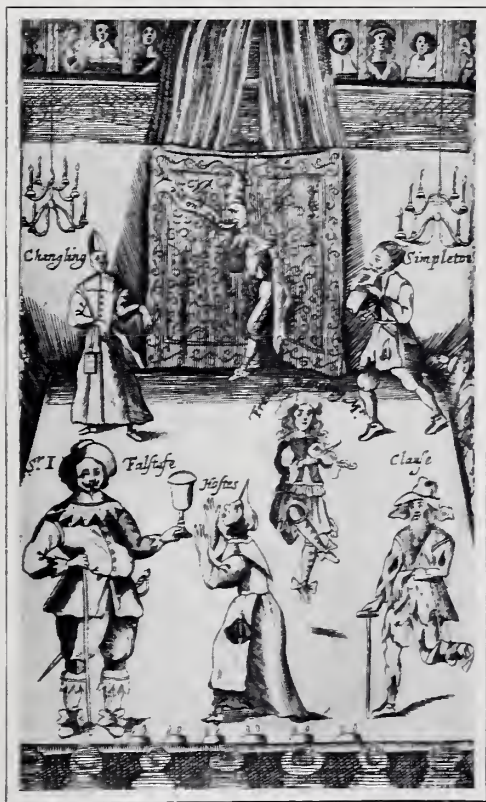 Changling
Simpleton
Sr I Falstafe
Hostes
Clause